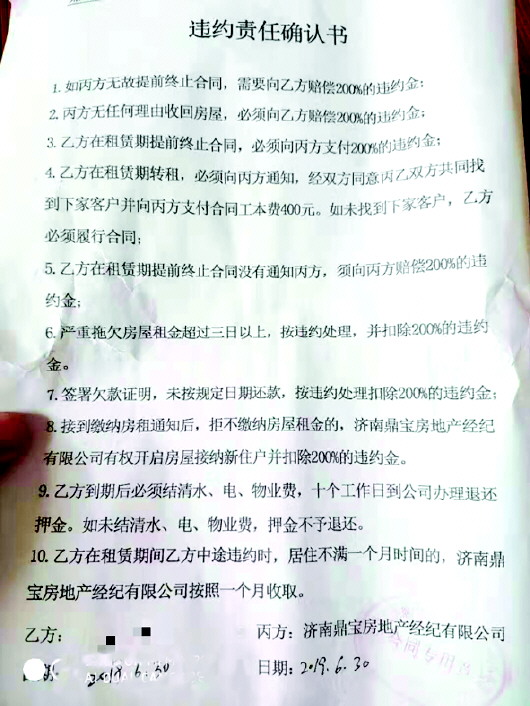 违约责任确认书
1. 如丙方无故提前终止合同，需要向乙方赔偿200%的违约金；
2. 丙方无任何理由收回房屋，必须向乙方赔偿200%的违约金；
3. 乙方在租赁期提前终止合同，必须向丙方支付200%的违约金；
4. 乙方在租赁期转租，必须向丙方通知，经双方同意丙乙双方共同找
到下家客户并向丙方支付合同工本费400元。如未找到下家客户，乙方
必须履行合同；
5. 乙方在租赁期提前终止合同没有通知丙方，须向丙方赔偿200%的违
约金；
6. 严重拖欠房屋租金超过三日以上，按违约处理，并扣除200%的违约
金。
7. 签署欠款证明，未按规定日期还款，按违约处理扣除200%的违约金；
8. 接到缴纳房租通知后，拒不缴纳房屋租金的，济南鼎宝房地产经纪
有限公司有权开启房屋接纳新住户并扣除200%的违约金。
9. 乙方到期后必须结清水、电、物业费，十个工作日到公司办理退还
押金。如未结清水、电、物业费，押金不予退还。
10. 乙方在租赁期间乙方中途违约时，居住不满一个月时间的，济南鼎
宝房地产经纪有限公司按照一个月收取。
乙方：
丙方：济南鼎宝房地产经纪有限公司
日期：2019.6.30